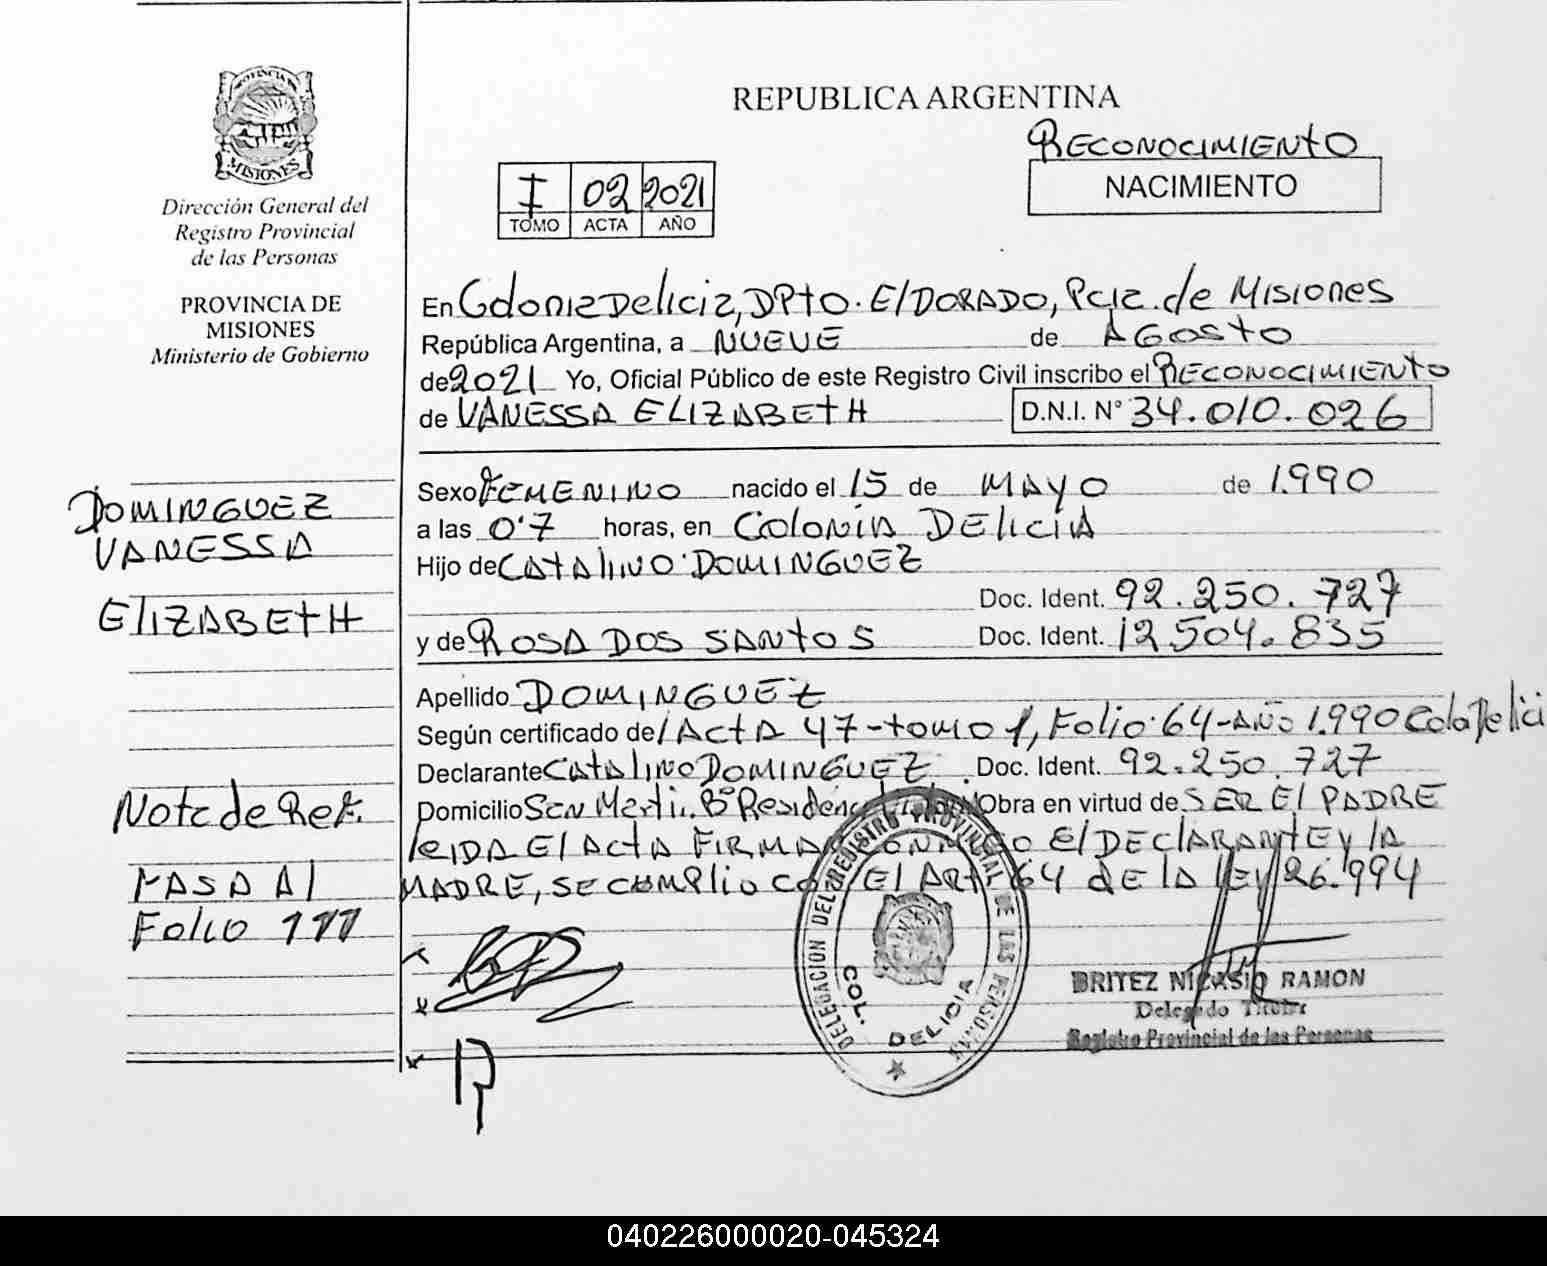 PROVINCIA
MISIONES
Dirección General del
Registro Provincial
de las Personas
PROVINCIA DE
MISIONES
Ministerio de Gobierno
DOMINGUEZ
VANESSA
ElIZABEtH
Nota de Ref.
PASA Al
Folio 111
REPUBLICA ARGENTINA
RECONOCIMIENTO
NACIMIENTO
I 02 2021
TOMO ACTA AÑO
En Colonia Delicia, DPtO. ElDORADO, Pcia. de Misiones
República Argentina, a NUEVE de AGOStO
de 2021 Yo, Oficial Público de este Registro Civil inscribo el RECONOCIMIENtO
de VANESSA ELIZABEtH D.N.I. N° 34.010.026
Sexo FEMENINO nacido el 15 de MAYO de 1.990
a las 0'7 horas, en COloNIA DElICIA
Hijo de CAtAlINO DOMINGUEZ
Doc. Ident. 92.250.727
y de ROSA DOS SANtOS Doc. Ident. 12504.835
Apellido DOMINGUEZ
Según certificado de ActA 47-tomo 1, Folio 64-Año 1.990 Cola Delici
Declarante CAtAlINO DOMINGUEZ. Doc. Ident. 92.250.727
Domicilio San Martin B° Obra en virtud de SER El PADRE
leIDA El ActA FIRMAN CONMIGO El DEClARANtE y lA
MADRE, SE CUMPlio CON El Art. 64 de lA lEy 26.994
DELEGACION DEL REGISTRO PROVINCIAL DE LAS PERSONAS
COL. DELICIA
BRITEZ NICASIO RAMON
Delegado Titular
Registro Provincial de las Personas
040226000020-045324